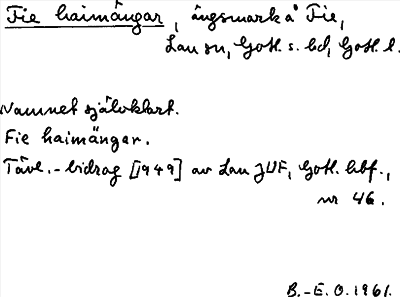 Fie haimängar, ängsmark å Fie,
Lau sn, Gotl. s. hd, Gotl. l.
Namnet självklart.
Fie haimänger.
Tävl.-bidrag [1949] av Lau JUF, Gotl. hbf.,
nr 46.
B.-E. O. 1961.